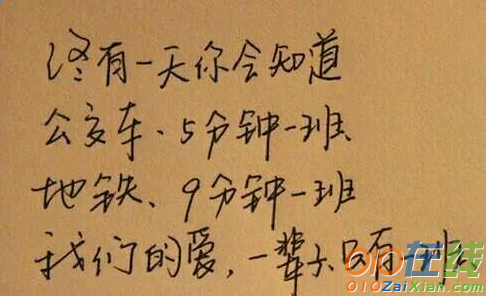 终有一天你会知道
公交车、5分钟一班、
地铁、9分钟一班
我们的爱,一辈子只有一班。
op在线
010ZaiXian.Com